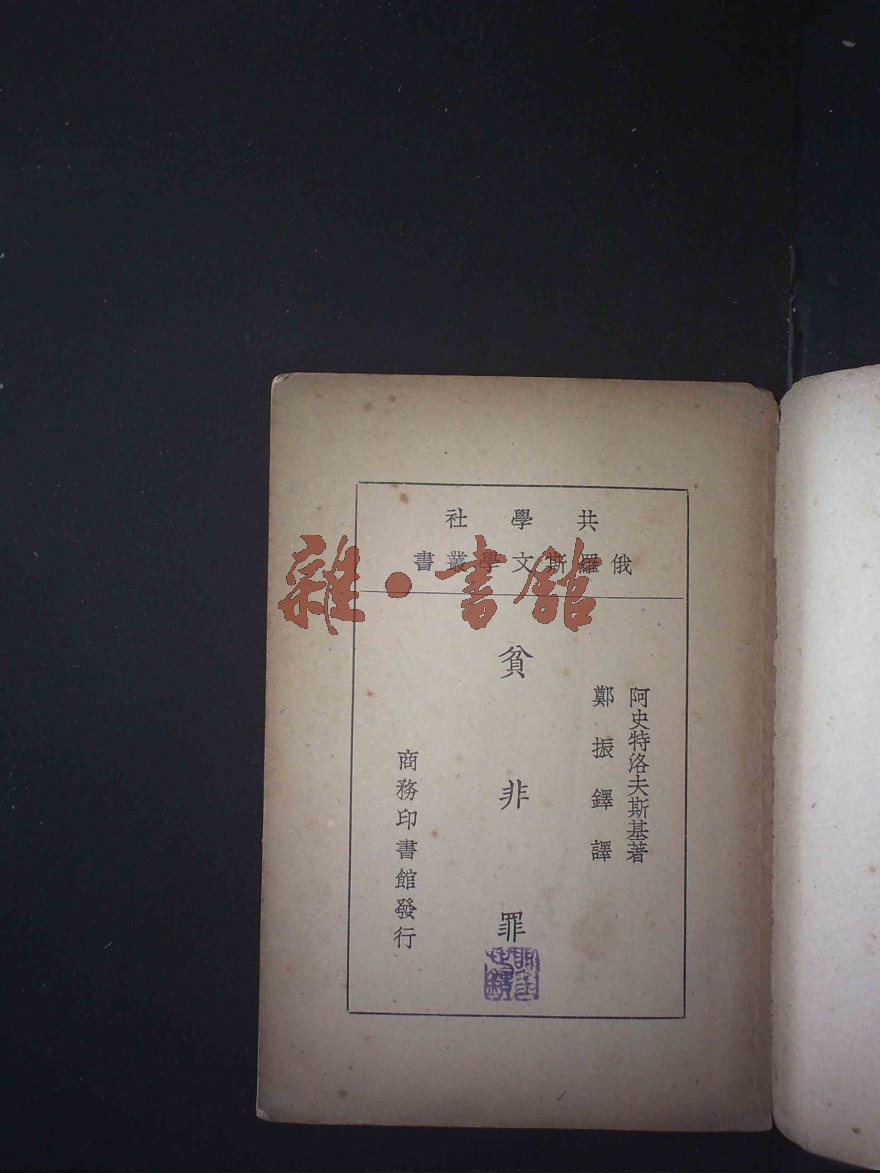 共學社
俄羅斯文學叢書
雜·書館
阿史特洛夫斯基著
鄭振鐸譯
貧非罪
商務印書館發行